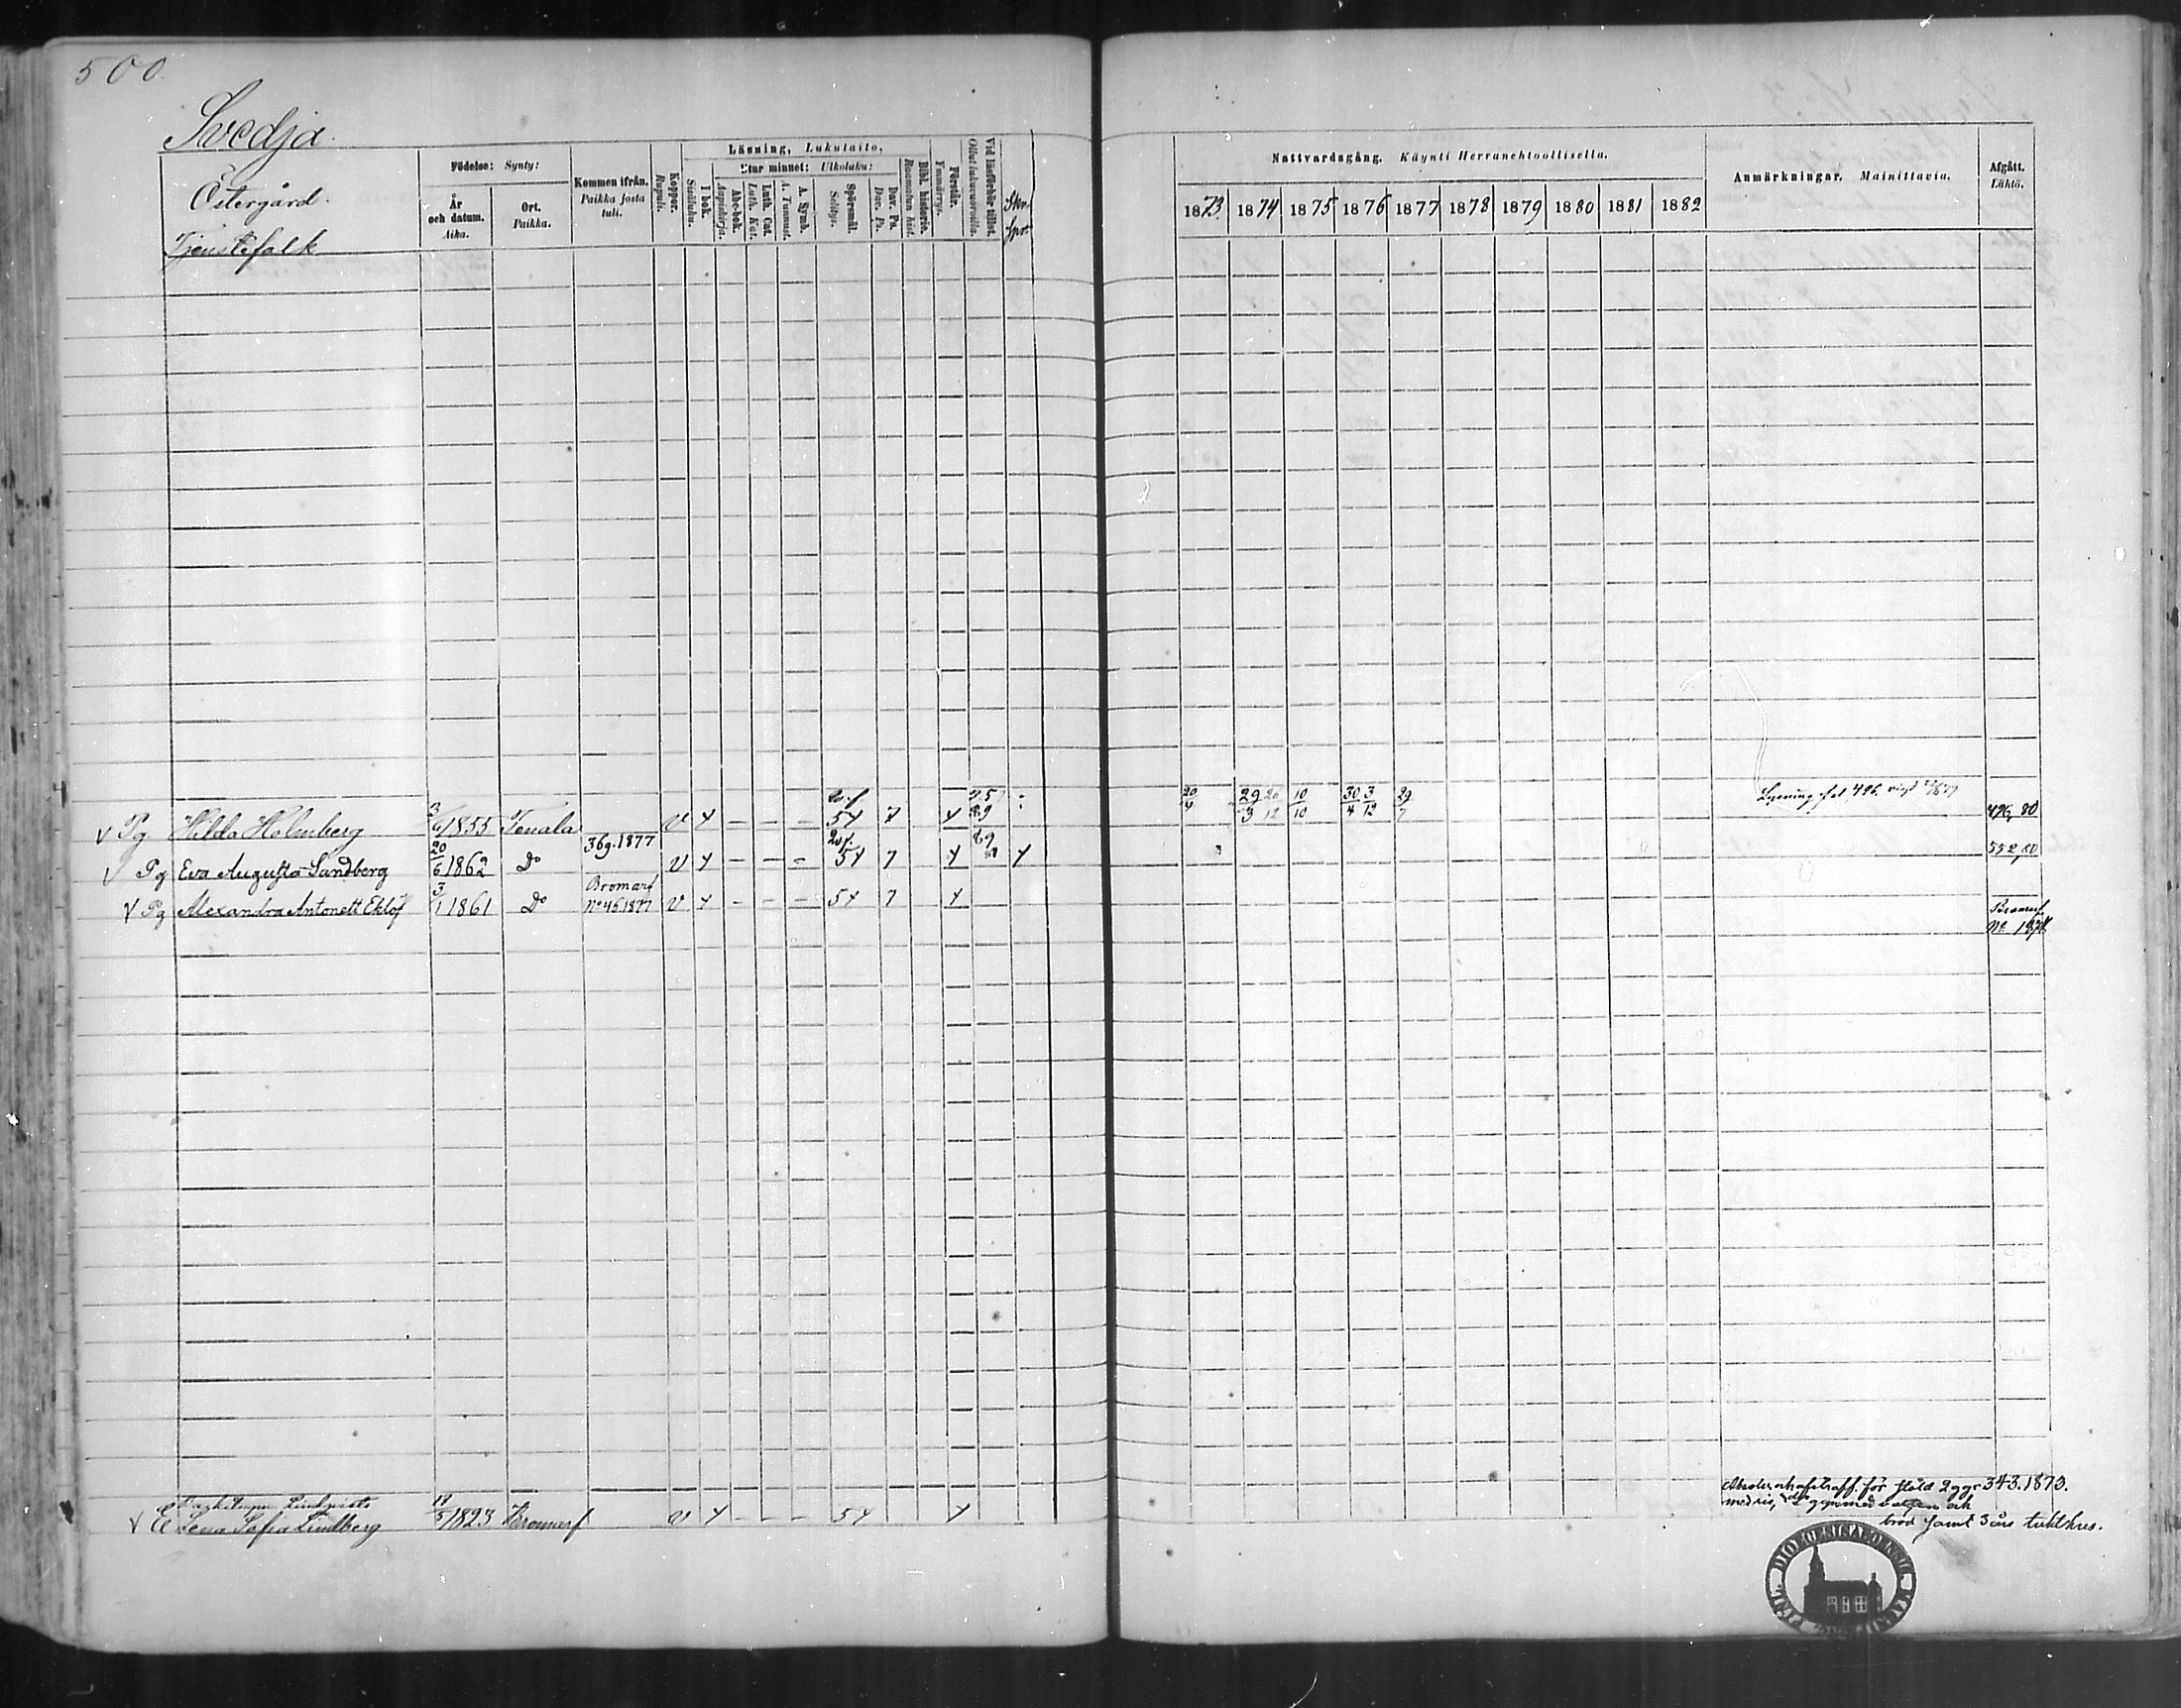 500
Svedja
Östergård.
Tjenstefolk
Födelse: Synty:
År och datum. Aika.
Ort. Paikka.
Kommen ifrån. Paikka josta tuli.
Koppor. Rupuli.
Läsning, Lukutaito,
I bok. Sisäluku.
Utur minnet: Ulkoluku:
Abc-bok. Aapiskirja.
Luth. Cat. Luth. Kat.
A. Symb. A. Tunnust.
Spörsmål. Selitys.
Dav. Ps. Dav. Ps.
Bibl. historie. Raamatun hist.
Förstår. Ymmärrys.
Vid läsförhör tillst. Ollut lukuvuoroilla.
Skr. Spr.
Nattvardsgång. Käynti Herranehtoollisella.
1873. 1874 1875 1876 1877 1878 1879 1880 1881 1882
Anmärkningar. Mainittavia.
Afgått. Läktö.
v Pg Hilda Holmberg 3/6 1855 Tenala v 54 7 20/4 29/3 20/12 10/10 30/4 3/12 29/7 Lysning fol 496. vigd 496, 80
v Pg Eva Augusta Sandberg 20/6 1862 Do 36g. 1877 v 54 7 552,80
v Pg Alexandra Antonett Eklöf 3/1 1861 Do Bromarf No 46 1877 v 54 7 Bromarf
No 1878
v E Lena Sofia Lindberg 1823 Bromarf v 54 straff. för stöld 2 ggr 343. 1873.
med ris, och
bröd samt 3 års tukthus.